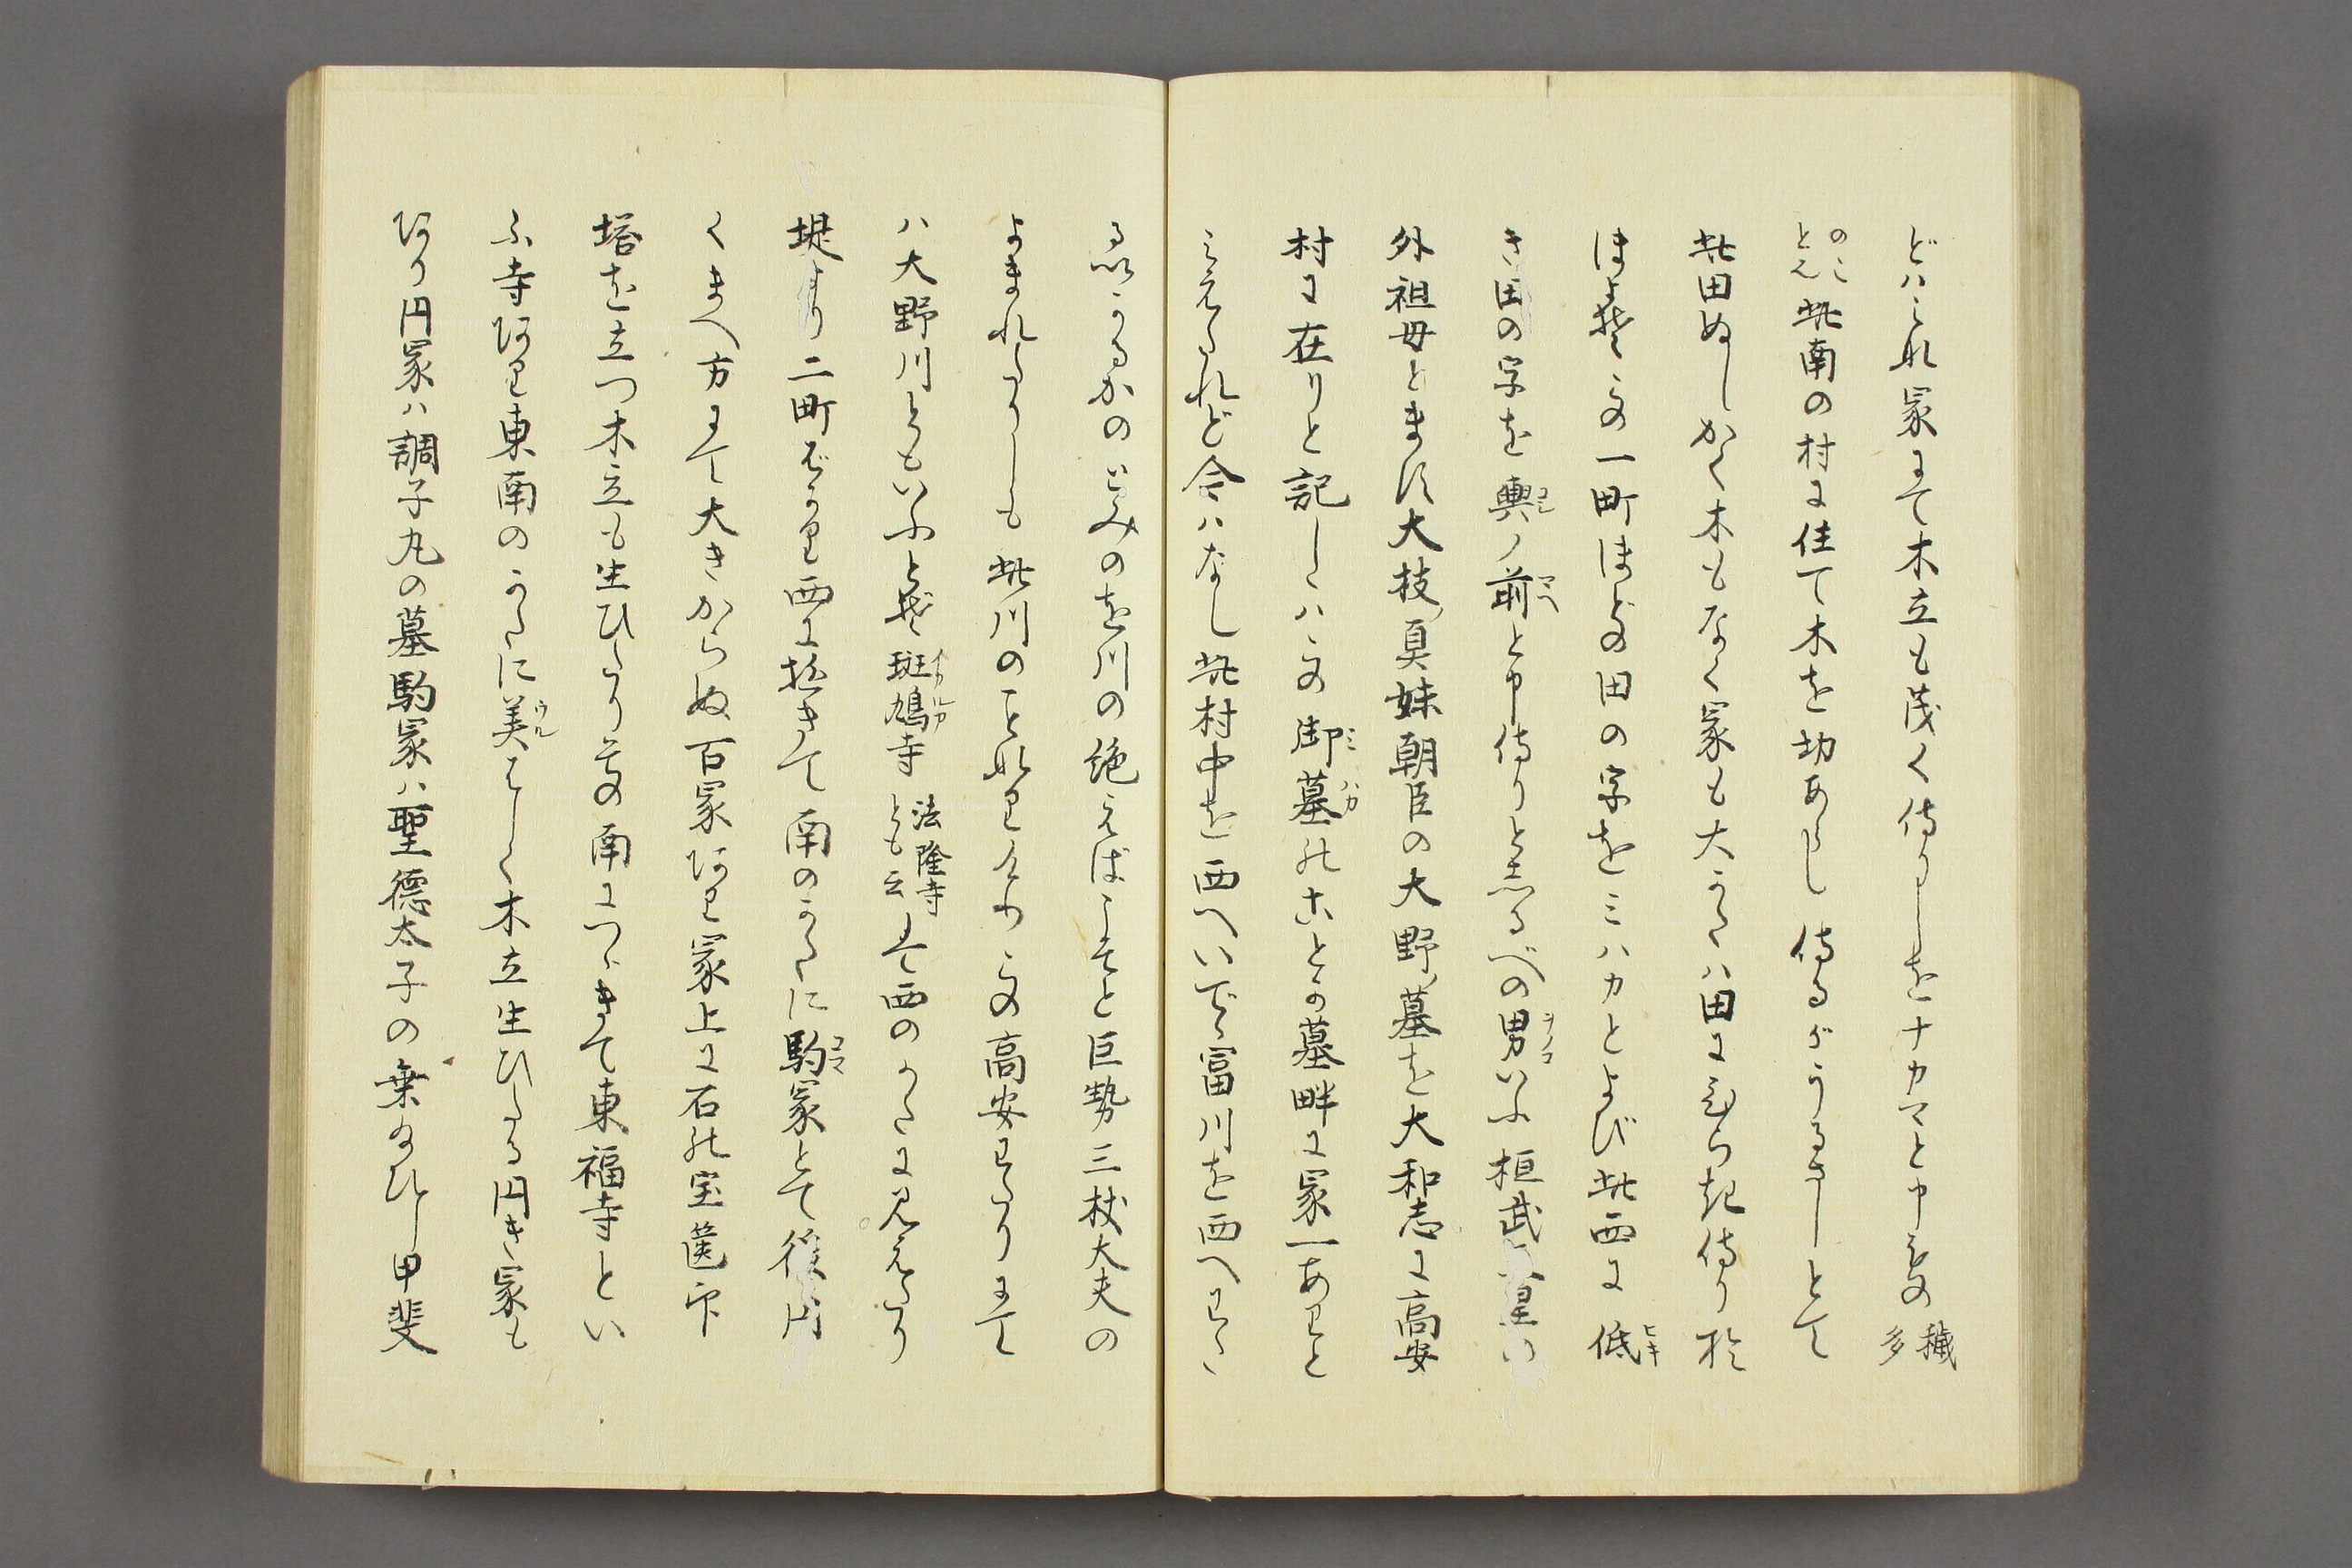 どハミれ冢にて木立も茂く侍りしをナカマと申ものの穢多
のことへ此南の村に住て木を切あらし侍るがうるさしとて
此田ぬしかく木もなく冢も大かたハ田にひらき侍り於
ほよそこの一町ほどの田の字をミハカとよび此西に低
き田の字を輿ノ前と申侍りと志るべの男いふ桓武天皇の
外祖母とます大枝ノ真妹朝臣の大野ノ墓を大和志に高安
村に在りと記しゝハこの御墓のこと也墓畔に冢一ありと
ミえたれど今ハなし此村中を西へいでゝ富川を西へわた
るいかるがのとみのを川の絶えばこそと巨勢三杖大夫の
よまれたりしも此川のことなりけりこの高安わたりにて
ハ大野川ともいふとぞ斑鳩寺法隆寺とも云して西のかたに見えたり
堤より二町ばかり西に越きて南のかたに駒冢とて後円
くまへ方にて大きからぬ百冢あり冢上に石の宝篋印
塔を立つ木立も生ひたりその南につゞきて東福寺とい
ふ寺あり東南のかたに美はしく木立生ひたる円き冢も
あり円冢ハ調子丸の墓駒冢ハ聖徳太子の乗給ひし甲斐